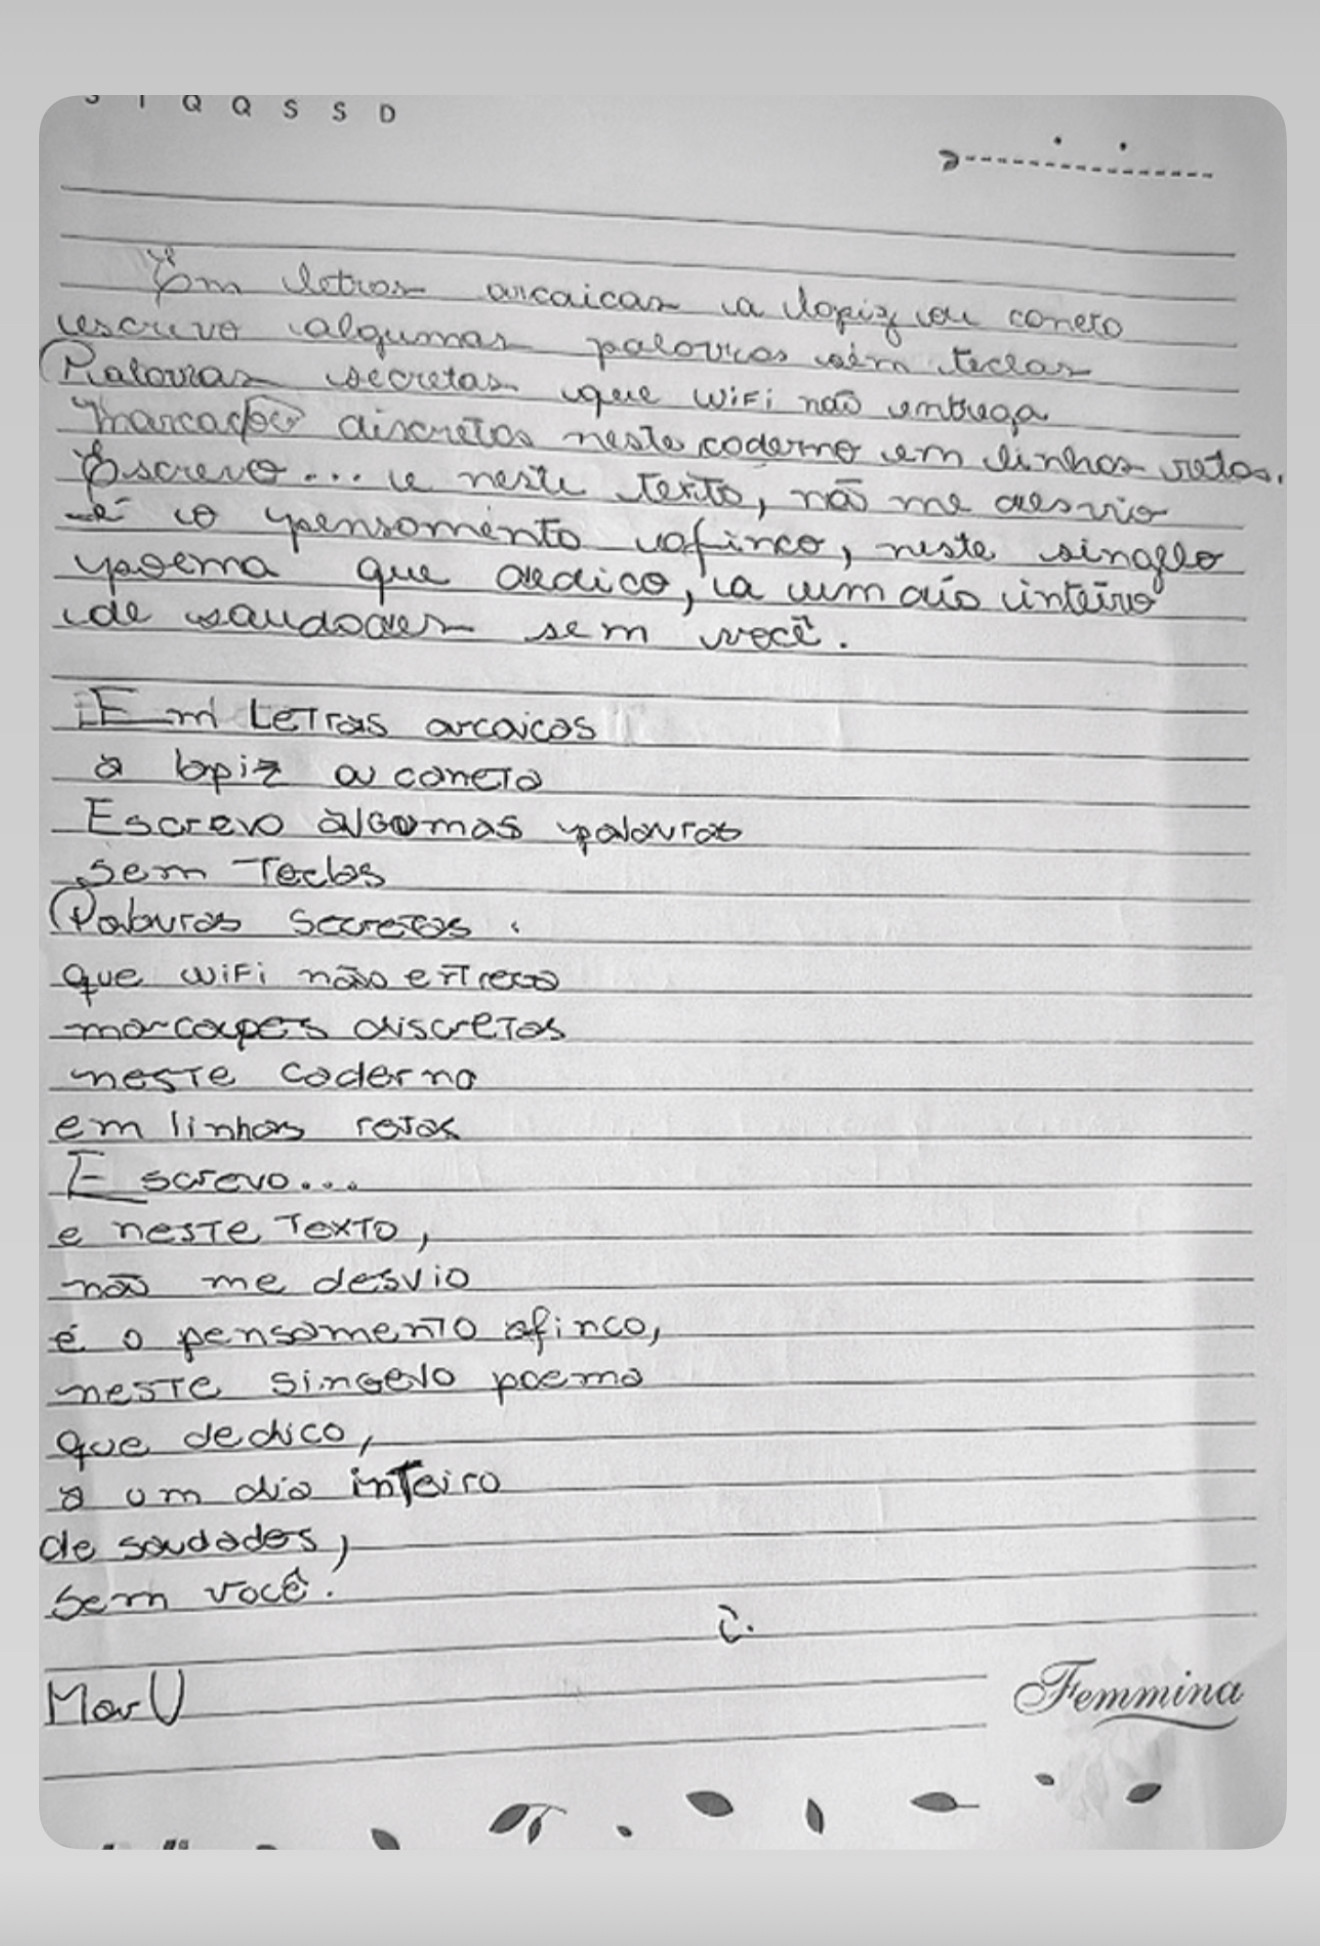 S T Q Q S S D
Em letras arcaicas a lapiz ou caneta
escrevo algumas palavras sem teclas
Palavras secretas que WiFi não entrega
Marcações discretas neste caderno em linhas retas.
Escrevo... e neste texto, não me desvio
é o pensamento afinco, neste singelo
poema que dedico, a um dia inteiro
de saudades sem você.
Em Letras arcaicas
a lapiz ou caneta
Escrevo algumas palavras
sem Teclas
Palavras secretas
que WiFi não entrega
marcações discretas
neste caderno
em linhas retas
Escrevo...
e neste Texto,
não me desvio
é o pensamento afinco,
neste singelo poema
que dedico,
a um dia inteiro
de saudades,
sem você.
MarU
Femmina